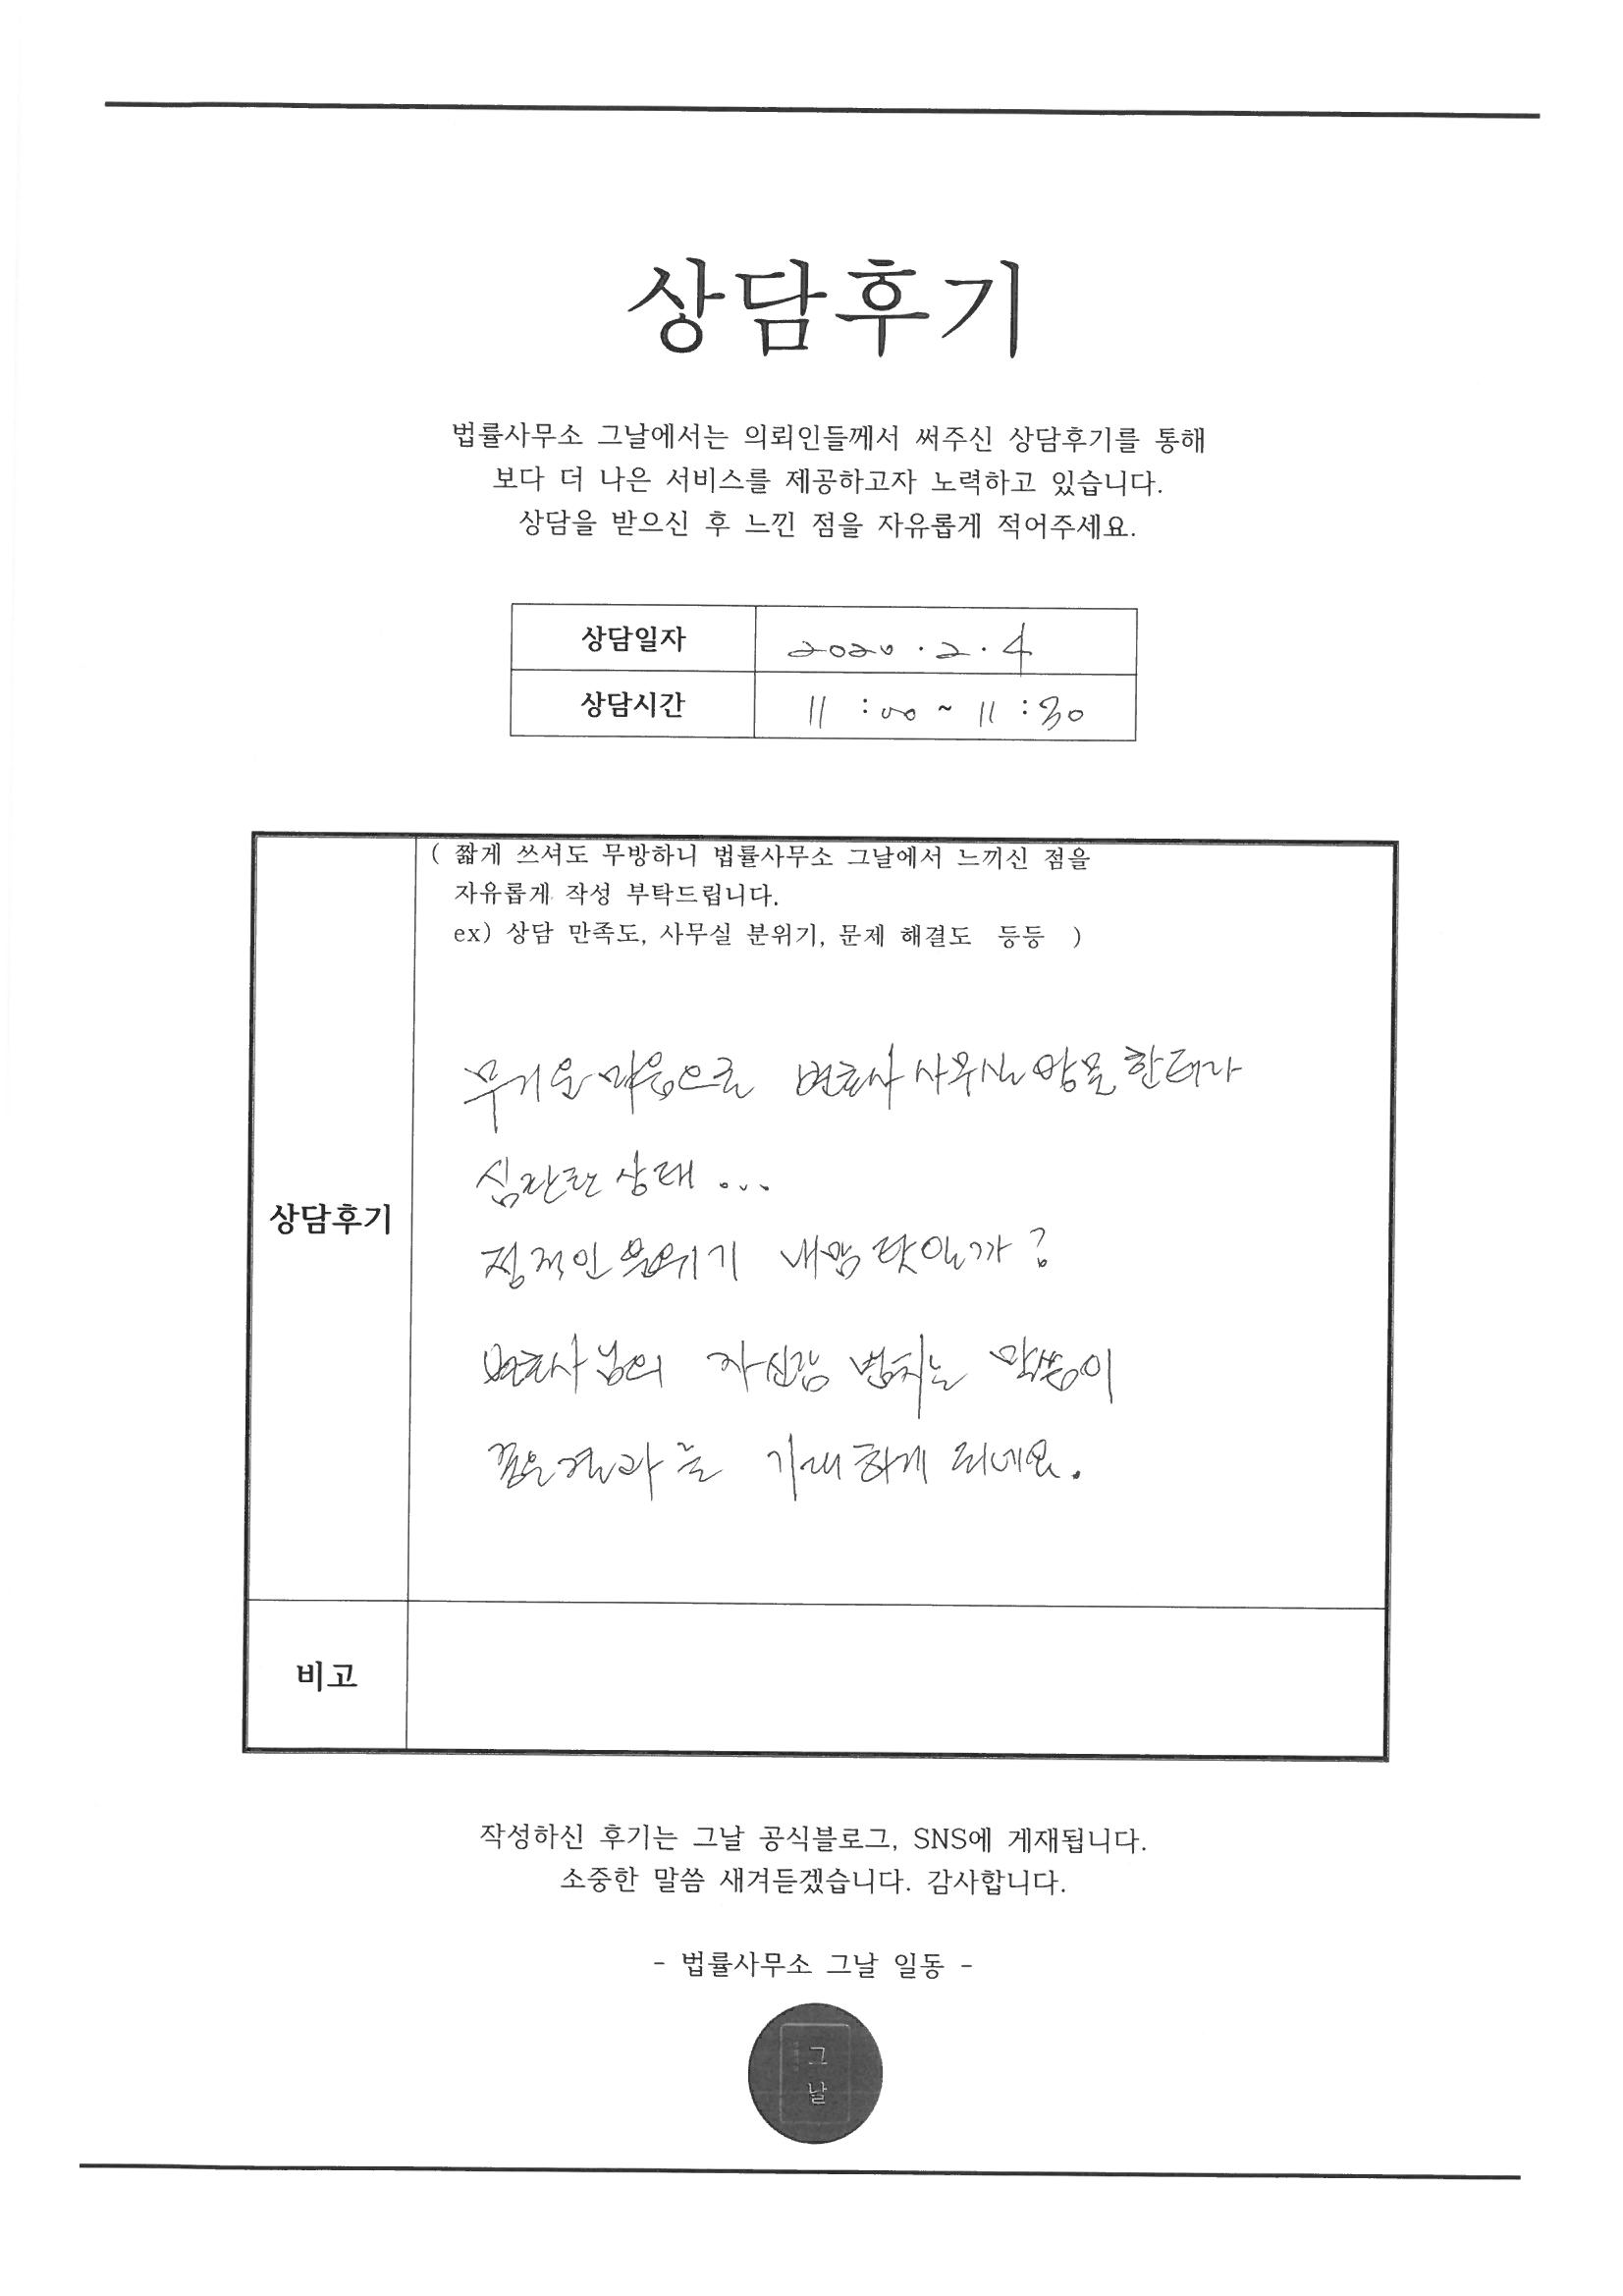 상담후기
법률사무소 그날에서는 의뢰인들께서 써주신 상담후기를 통해
보다 더 나은 서비스를 제공하고자 노력하고 있습니다.
상담을 받으신 후 느낀 점을 자유롭게 적어주세요.
상담일자 2020 . 2 . 4
상담시간 11 : 00 ~ 11 : 30
( 짧게 쓰셔도 무방하니 법률사무소 그날에서 느끼신 점을
자유롭게 작성 부탁드립니다.
ex) 상담 만족도, 사무실 분위기, 문제 해결도 등등 )
무거운 마음으로 변호사 사무실 방문 한터라
심란한 상태 ...
상담후기
정적인 분위기 내맘 탓일까?
변호사님의 자신감 넘치는 말씀이
좋은결과를 기대하게 되네요.
비고
작성하신 후기는 그날 공식블로그, SNS에 게재됩니다.
소중한 말씀 새겨듣겠습니다. 감사합니다.
- 법률사무소 그날 일동 -
그
날